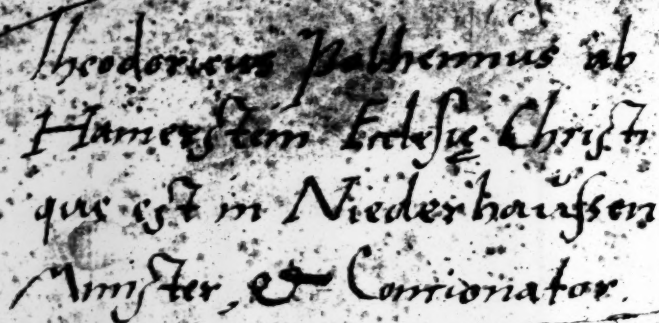 Theodoricus Polhennius ab
Hamerstein Ecclesię Christi
quę est in Niederhaussen
Minister, & Concionator.